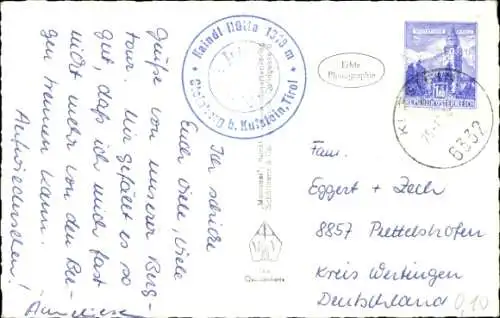 Ich schicke
Euch viele, viele
Grüße von unserer Berg-
tour. Mir gefällt es so
gut, daß ich mich fast
nicht mehr von den Ber-
gen trennen kann.
Aufwiedersehen!
Anneliese
Kaindl Hütte 1318 m
b. Kufstein-Tirol
Echte
Photographie
REPUBLIK ÖSTERREICH
6332
Fam.
Eggert + Zech
8857 Prettelshofen
Kreis Wertingen
Deutschland
0,10